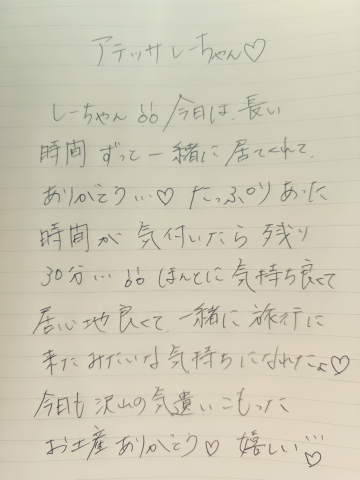 アテッサ しーちゃん♡
しーちゃん 今日は、長い
時間 ずっと一緒に 居てくれて、
ありがとう…♡ たっぷりあった
時間が 気付いたら 残り
30分… ほんとに 気持ち良くて
居心地良くて、一緒に 旅行に
来たみたいな気持ちになれたよ♡
今日も 沢山の気遣いこもった
お土産 ありがとう♡ 嬉しい…♡